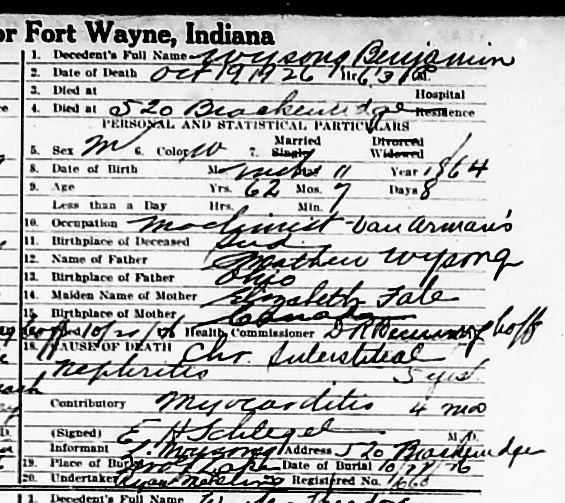 or Fort Wayne, Indiana
1. Decedent's Full Name Wysong Benjamin
2. Date of Death Oct 19 1926 Hr. 6 30
3. Died at Hospital
4. Died at 520 Brackenridge Residence
PERSONAL AND STATISTICAL PARTICULARS
5. Sex M 6. Color W 7. Married Single Divorced Widowed
8. Date of Birth M March 11 Year 1864
9. Age Yrs. 62 Mos. 7 Days 8
Less than a Day Hrs. Min.
10. Occupation Machinist Van Arman's
11. Birthplace of Deceased Ind
12. Name of Father Mathew Wysong
13. Birthplace of Father Ohio
14. Maiden Name of Mother Elizabeth
15. Birthplace of Mother Canada
Health Commissioner
18. CAUSE OF DEATH Chr. Interstitial
Nephritis 5 yrs.
Contributory Myocarditis 4 mos
(Signed) E H Schlegel M. D.
Informant Address 520 Brackenridge
19. Place of Burial Date of Burial
20. Undertaker Registered No.
1. Decedent's Full Name